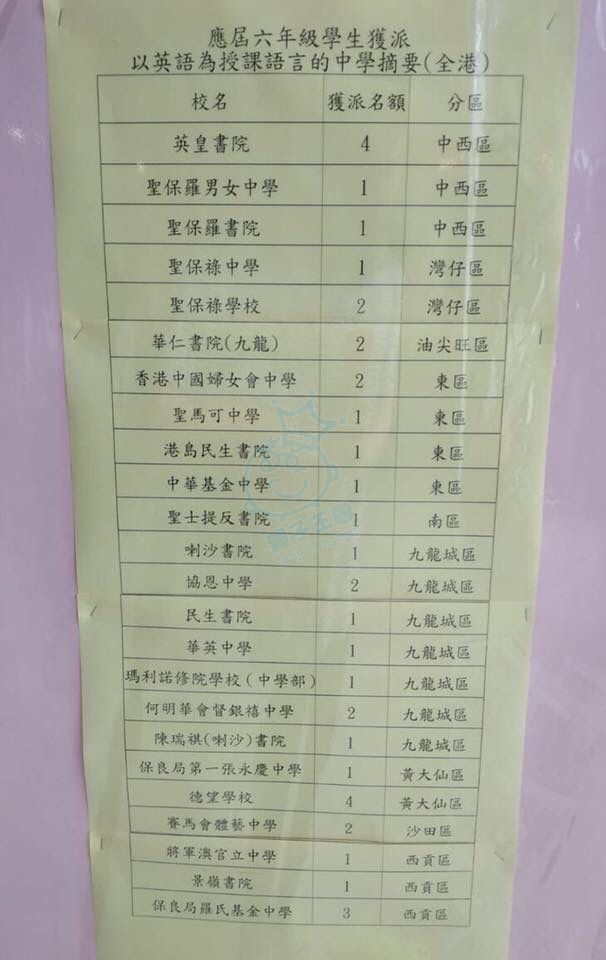 應屆六年級學生獲派
以英語為授課語言的中學摘要(全港)
校名 獲派名額 分區
英皇書院 4 中西區
聖保羅男女中學 1 中西區
聖保羅書院 1 中西區
聖保祿中學 1 灣仔區
聖保祿學校 2 灣仔區
華仁書院(九龍) 2 油尖旺區
香港中國婦女會中學 2 東區
聖馬可中學 1 東區
港島民生書院 1 東區
中華基金中學 1 東區
聖士提反書院 1 南區
喇沙書院 1 九龍城區
協恩中學 2 九龍城區
民生書院 1 九龍城區
華英中學 1 九龍城區
瑪利諾修院學校(中學部) 1 九龍城區
何明華會督銀禧中學 2 九龍城區
陳瑞祺(喇沙)書院 1 九龍城區
保良局第一張永慶中學 1 黃大仙區
德望學校 4 黃大仙區
賽馬會體藝中學 2 沙田區
將軍澳官立中學 1 西貢區
景嶺書院 1 西貢區
保良局羅氏基金中學 3 西貢區
親子王國